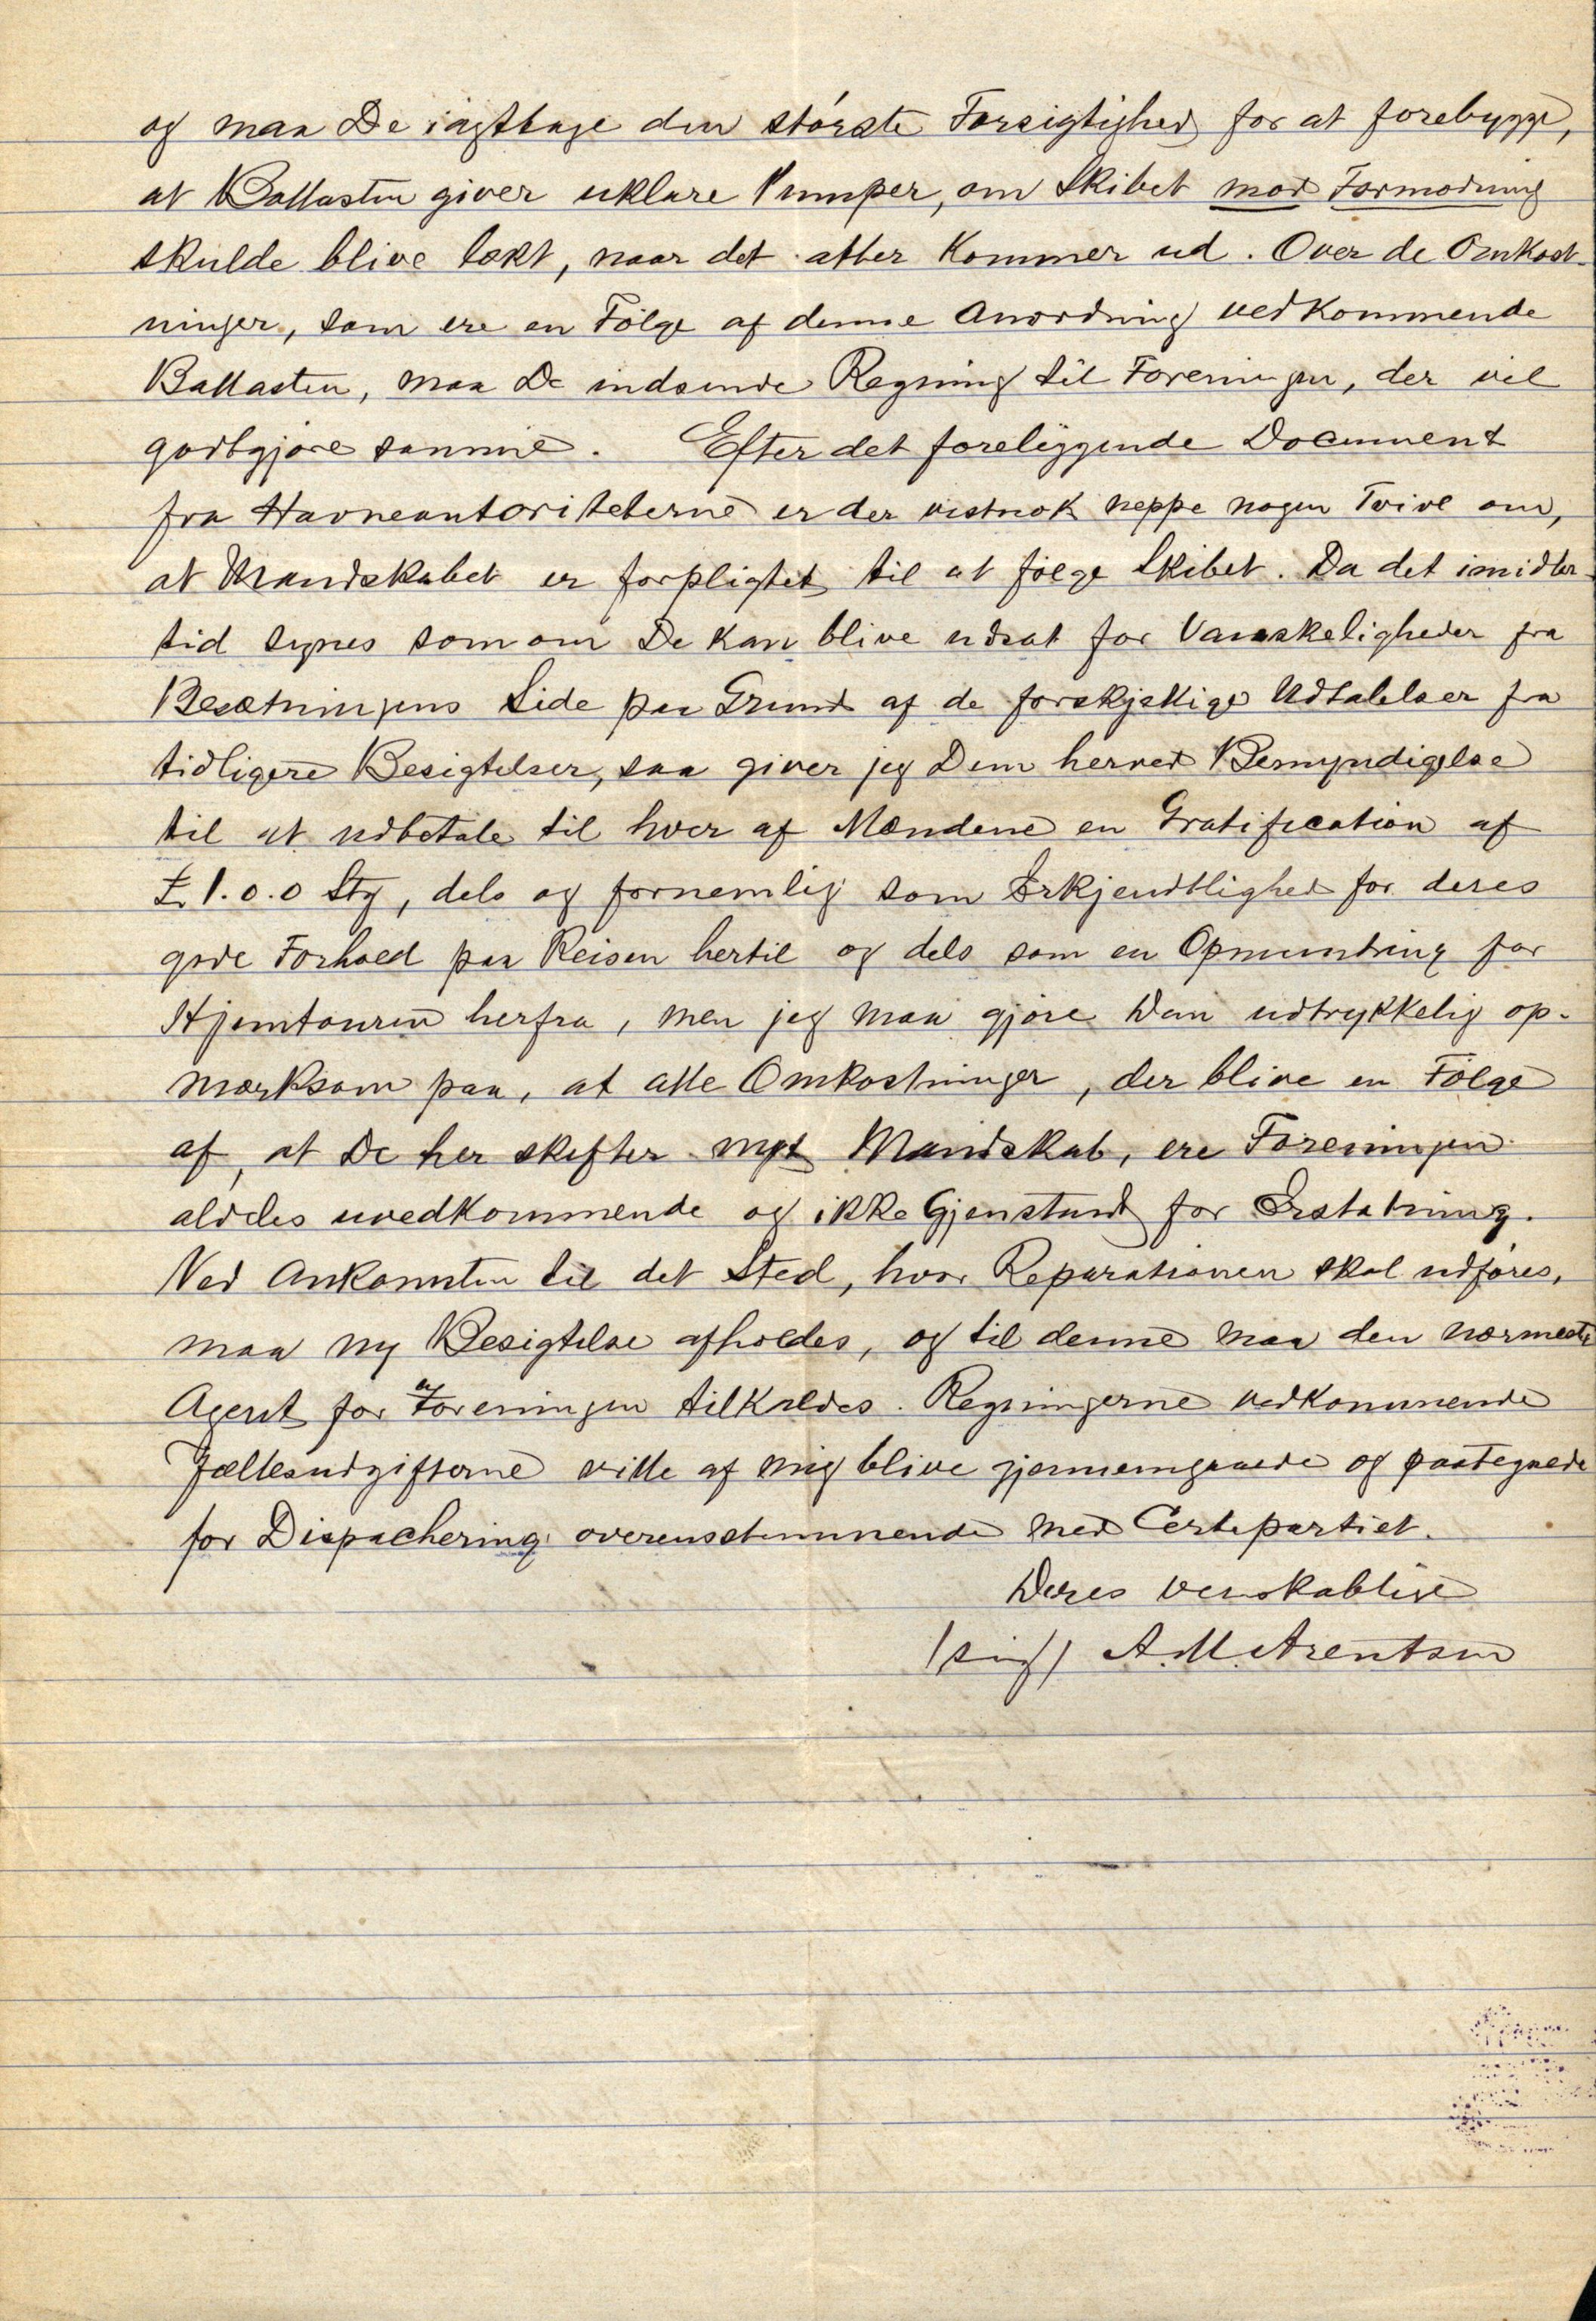 og maa De iagttage den største Forsigtighed for at forebygge,
at Ballasten giver uklare Pumper, om Skibet mod Formodning
skulde blive lækt, naar det atter kommer ud. Over de Omkost-
ninger, som ere en Følge af denne Anordning vedkommende
Ballasten, maa De indsende Regning til Foreningen, der vil
godtgjøre samme. Efter det foreliggende Document
fra Havneautoriteterne er der vistnok neppe nogen Tvivl om,
at Mandskabet er forpligtet til at følge Skibet. Da det imidler-
tid synes som om De kan blive udsat for Vanskeligheder fra
Besætningens Side paa Grund af de forskjellige Udtalelser fra
tidligere Besigtelser, saa giver jeg Dem herved Bemyndigelse
til at udbetale til hver af Mændene en Gratification af
£ 1.0.0 Stg, dels og fornemlig som Erkjendtlighed for deres
gode Forhold paa Reisen hertil og dels som en Opmuntring for
Hjemtouren herfra, men jeg maa gjøre Dem udtrykkelig op-
mærksom paa, at alle Omkostninger, der blive en Følge
af, at De her skifter Mandskab, ere Foreningen
aldeles uvedkommende og ikke Gjenstand for Erstatning.
Ved Ankomsten til det Sted, hvor Reparationen skal udføres,
maa ny Besigtelse afholdes, og til denne maa den nærmeste
Agent for Foreningen tilkaldes. Regningerne vedkommende
Fællesudgifterne ville af mig blive gjennemgaaede og paategnede
for Dispachering overensstemmende med Certepartiet.
Deres venskablige
(sig) A. M. Arentsen